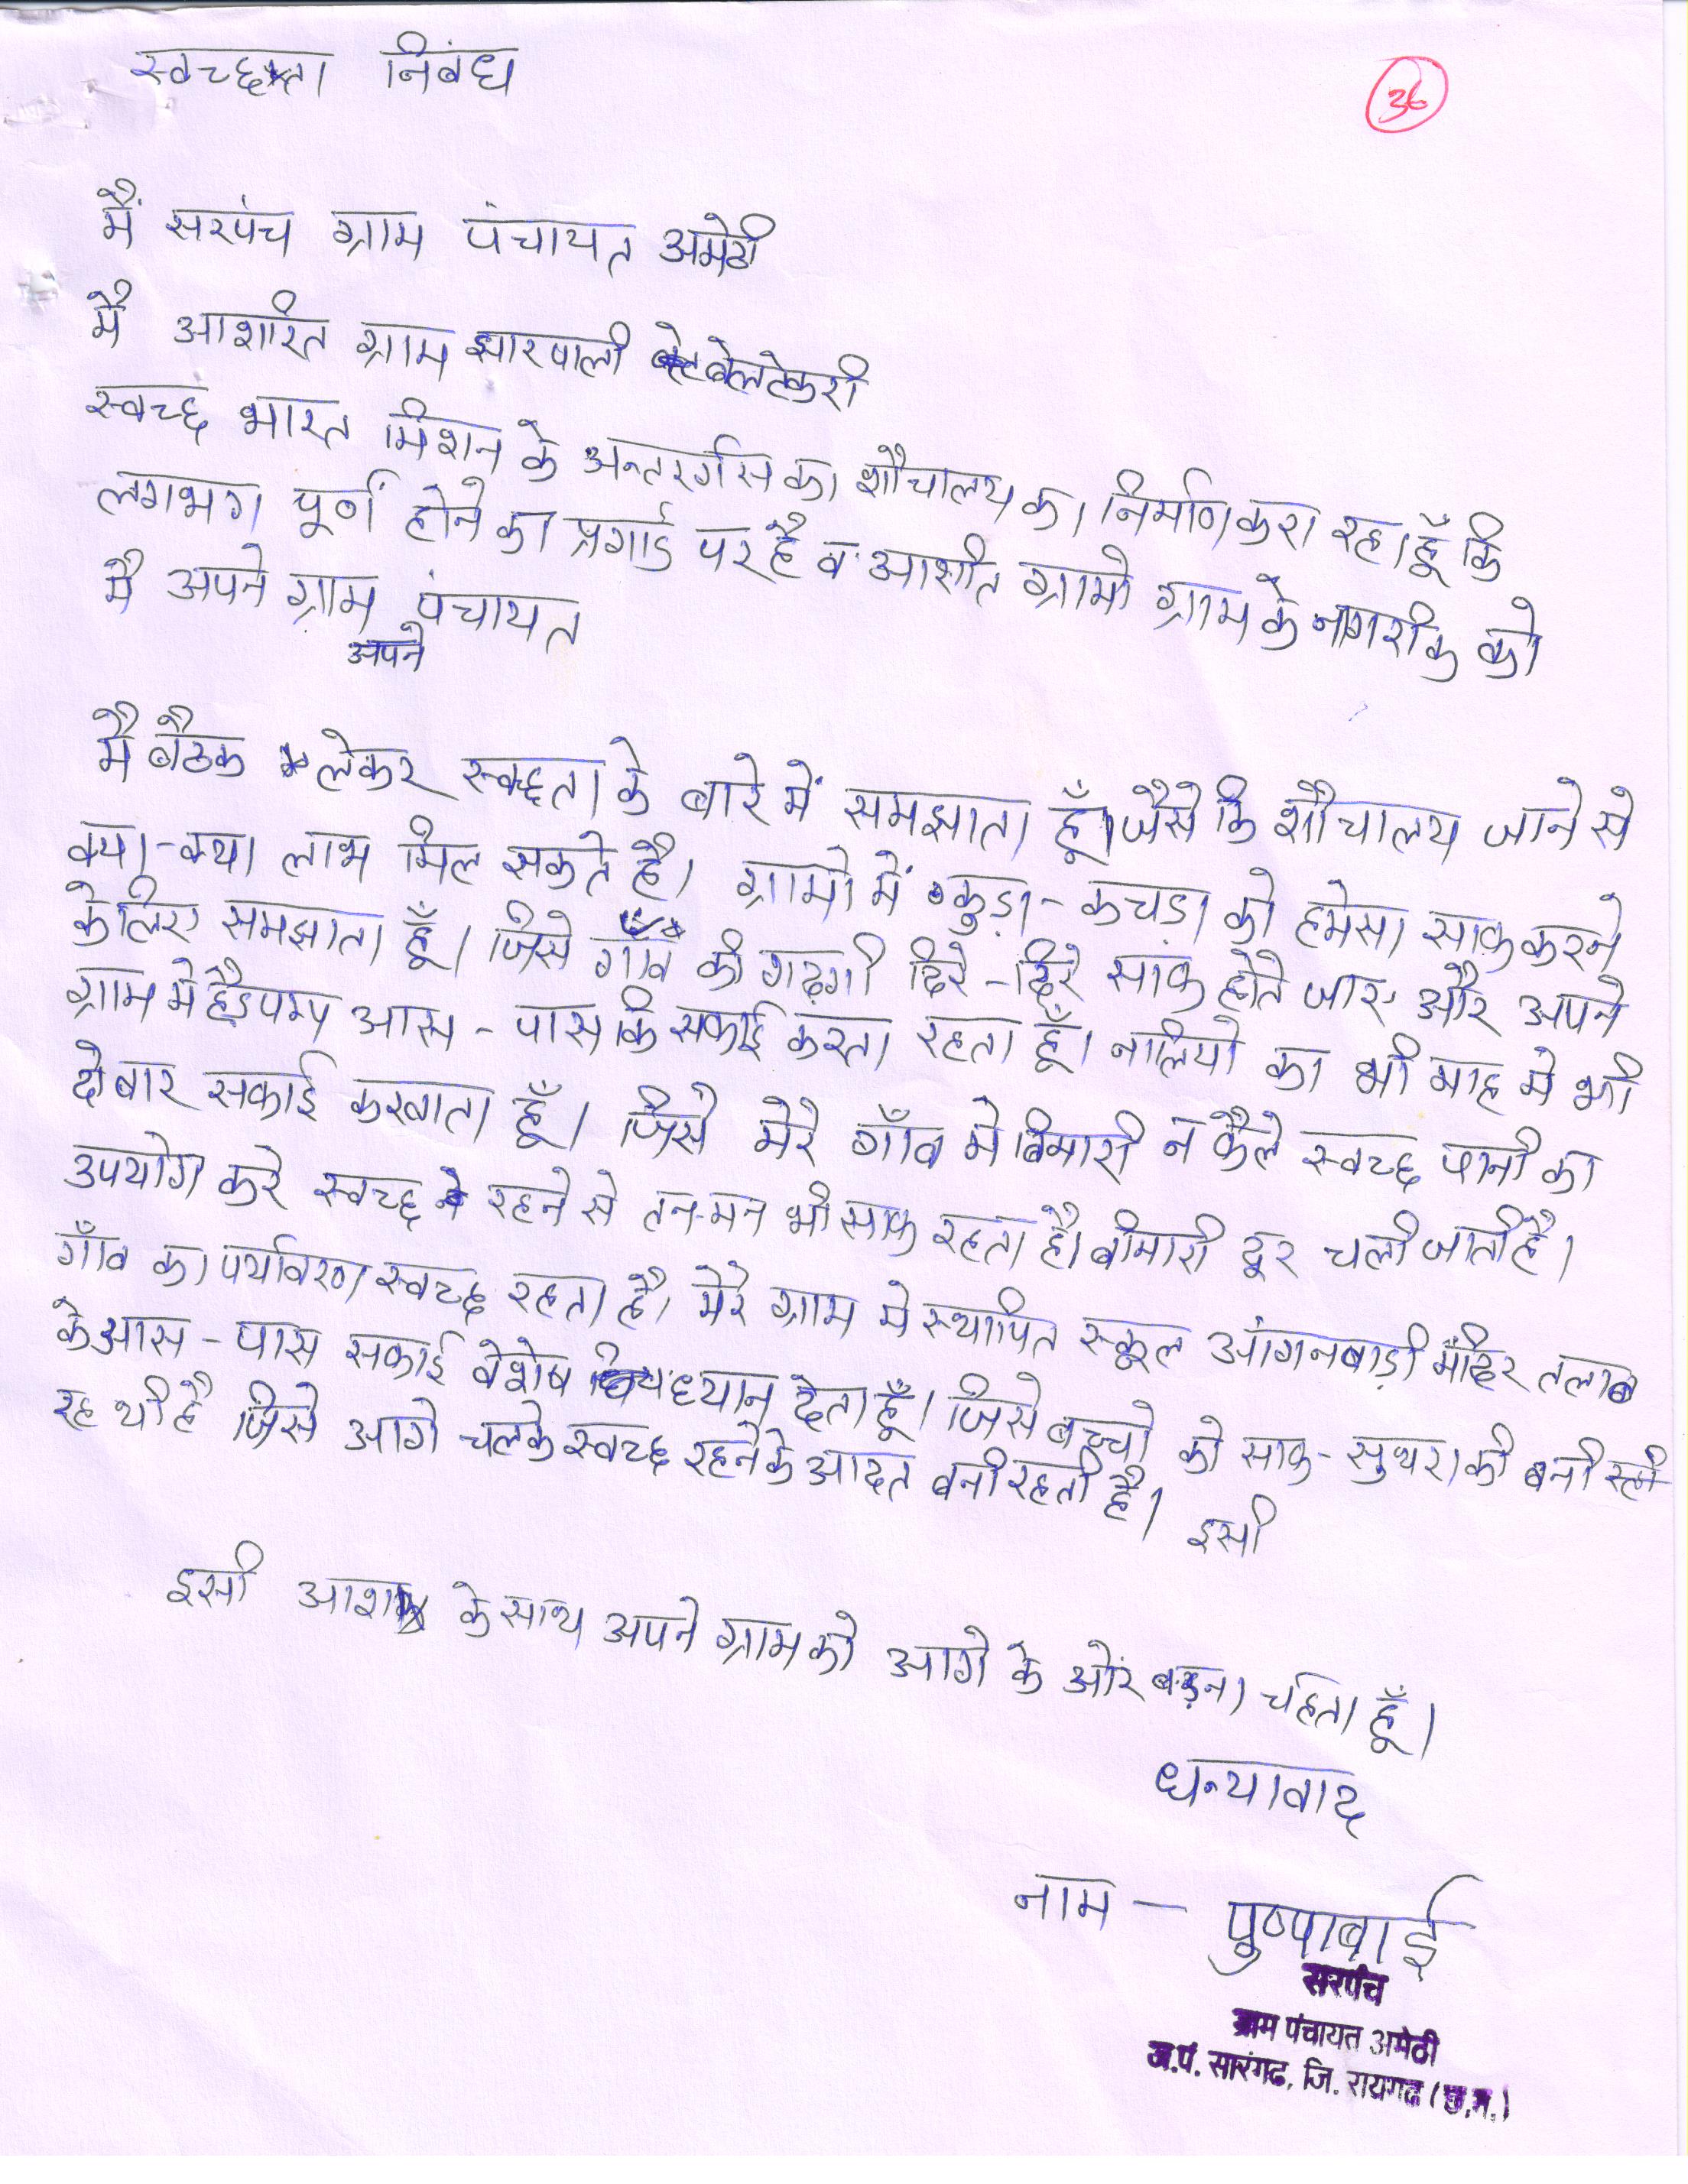 स्वच्छता निबंध
36
मैं सरपंच ग्राम पंचायत अमेठी
मै आशरित ग्राम झारपाली बेलटेकरी
स्वच्छ भारत मिशन के अन्तरर्गस का शौचालय का निर्माण करा रहा हूँ कि
लगभग पूर्ण होने का प्रगाई पर है व आशीत ग्रामो ग्राम के नागरीक को
मै अपने ग्राम पंचायत
अपने
मै बैठक लेकर स्वच्छता के बारे में समझाता हूँ। जैसे कि शौचालय जाने से
क्या-क्या लाभ मिल सकते है। ग्रामो में कुड़ा-कचड़ा को हमेसा साफ करने
के लिए समझाता हूँ। जिसे गाँव की गढ़गी दिरे-दिरे साफ होते जाए और अपने
ग्राम मे हैडपम्प आस-पास कि सफाई करता रहता हूँ। नालियो का भी माह मे भी
दो बार सफाई करवाता हूँ। जिसे मेरे गाँव मे बिमारी न फैले स्वच्छ पानी का
उपयोग करे स्वच्छ रहने से तन-मन भी साफ रहता है। बीमारी दूर चली जाती है।
गाँव का पर्यावरण स्वच्छ रहता है। मेरे ग्राम मे स्थापित स्कूल आंगनबाड़ी मंदिर तलाब
के आस-पास सफाई वेशेष ध्यान देता हूँ। जिसे बच्चो को साफ-सुथरा की बनी
रह थी है जिसे आगे चलके स्वच्छ रहने के आदत बनी रहती है। इसी
इसी आशा के साथ अपने ग्राम को आगे के ओर बड़ना चहिता हूँ।
धन्यावाद
नाम - पुष्पाबाई
सरपंच
ग्राम पंचायत अमेठी
ज.पं. सारंगढ, जि. रायगढ (छ.ग.)